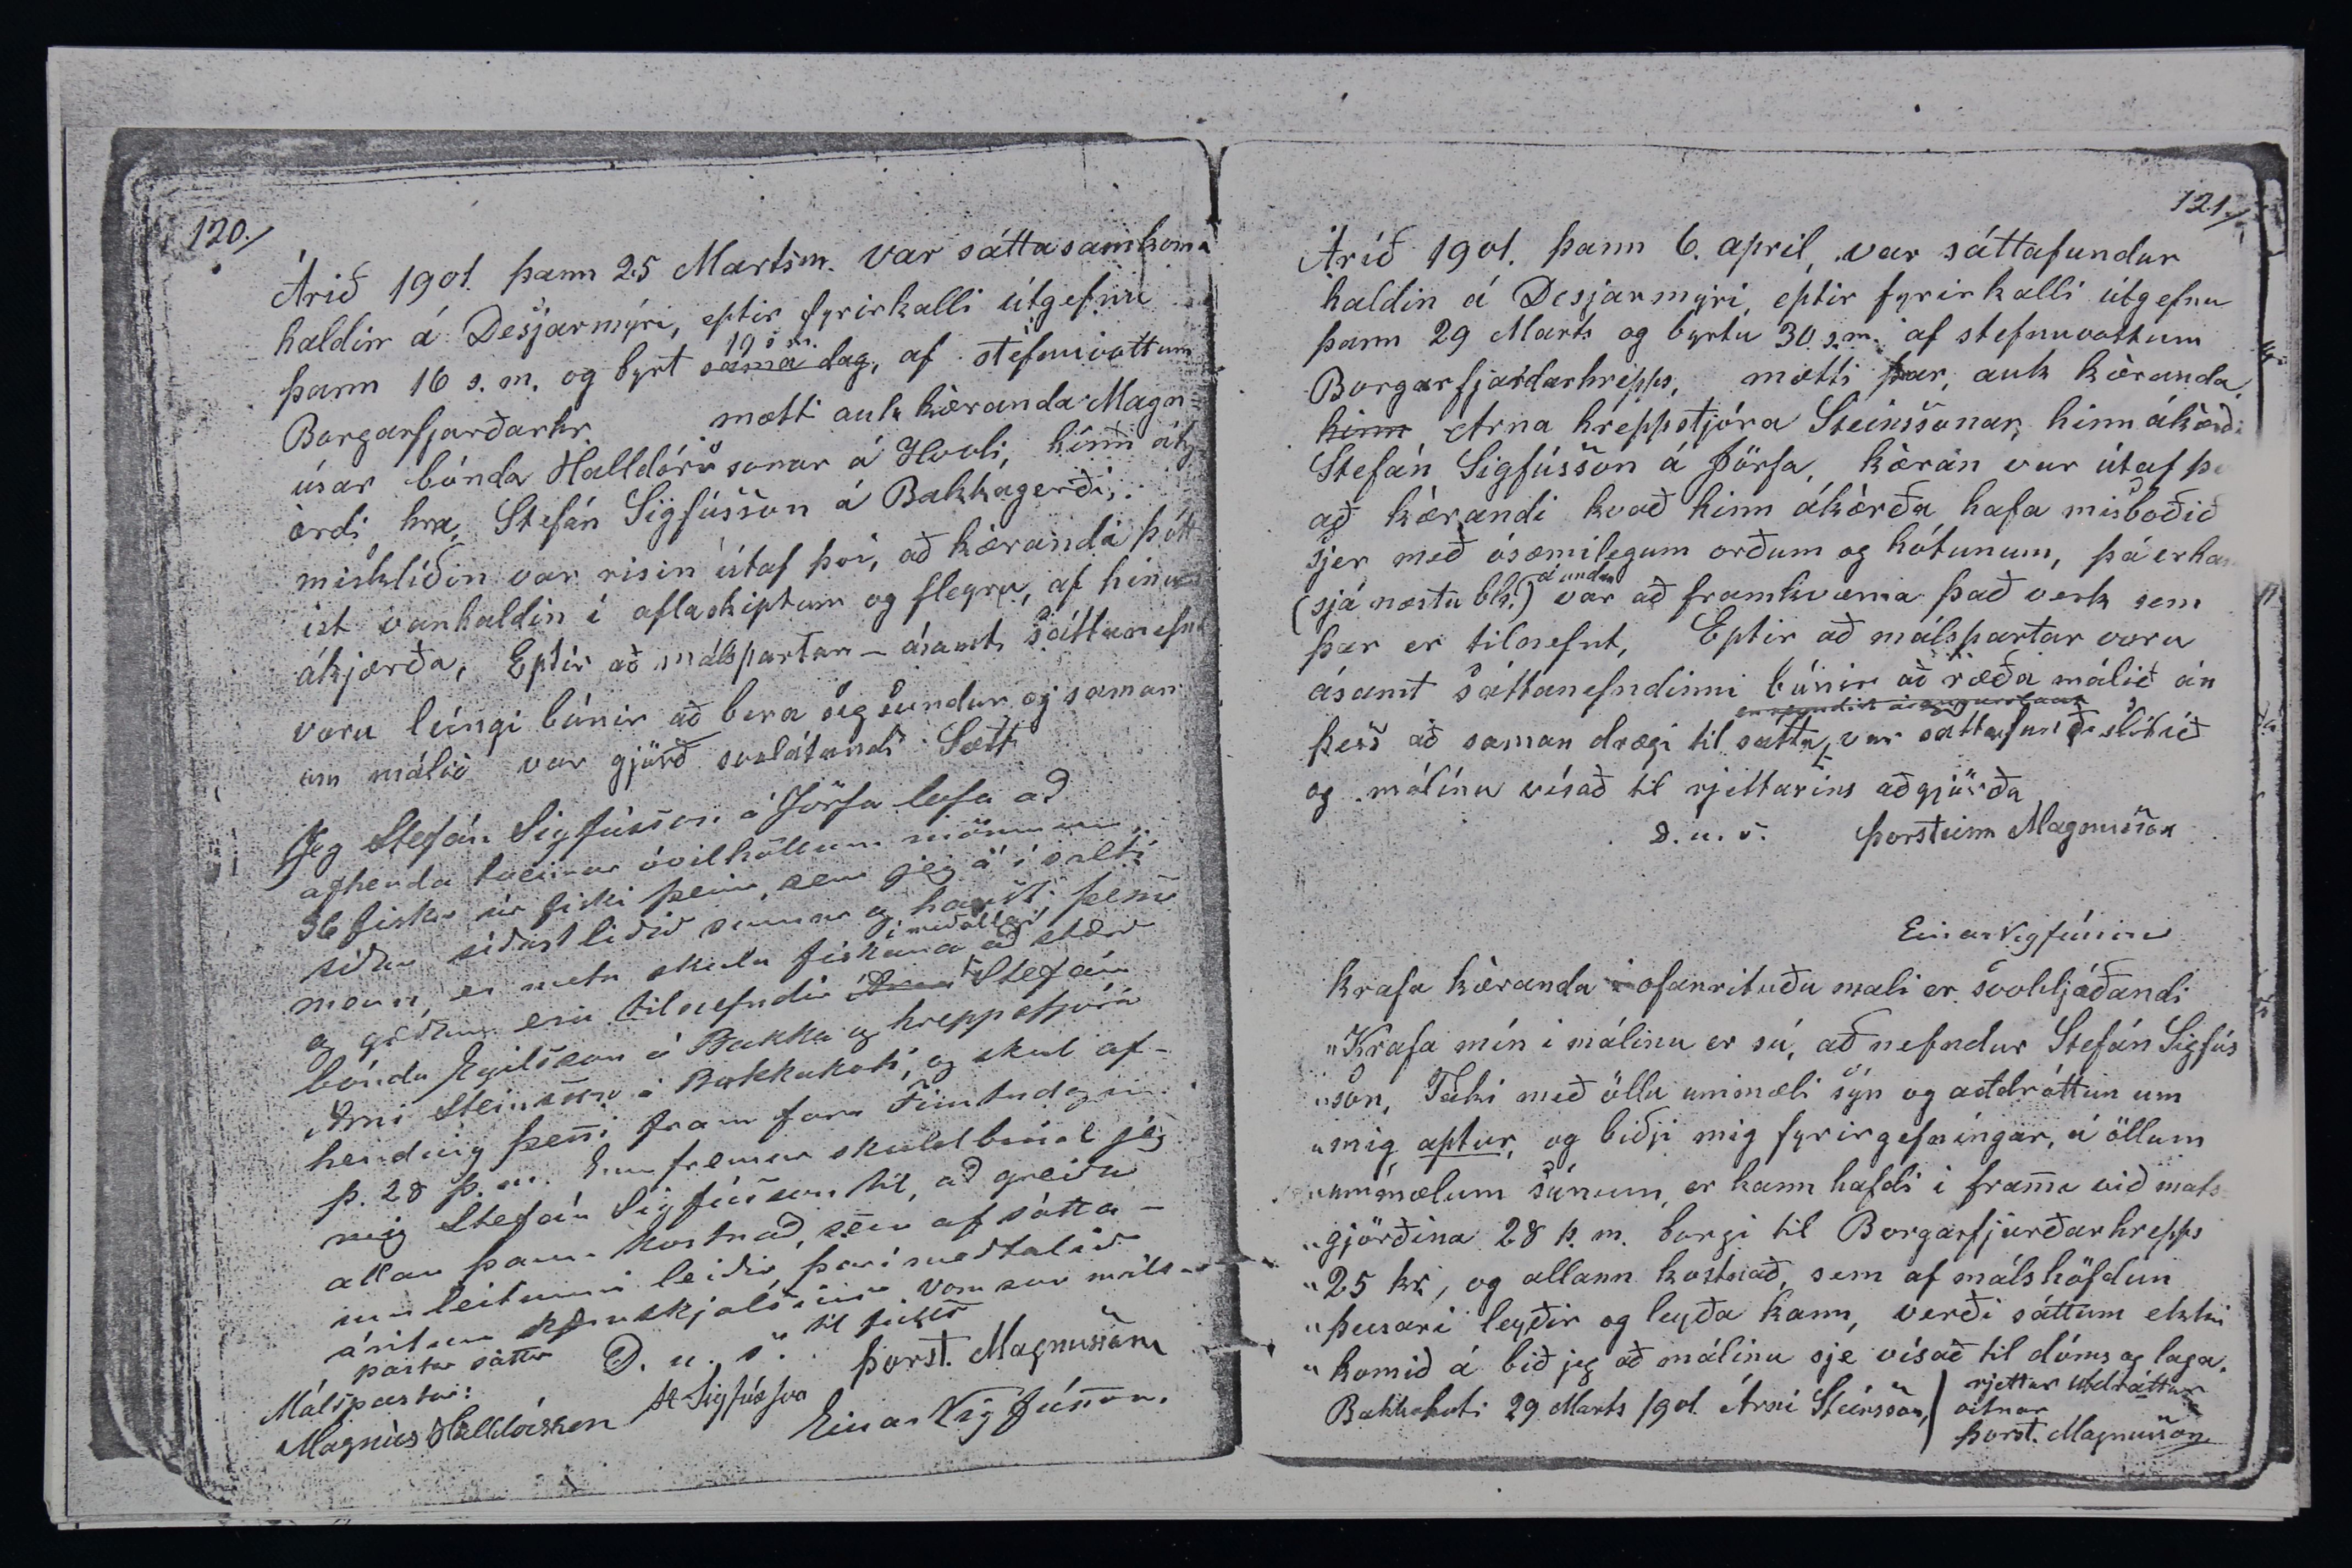 120./
Árið 1901. þann 25 Martsm. var sáttasamkoma
haldin á Desjarmýri, eptir fyrirkalli útgefnu
þann 16 s. m. og byrt 19 s. m. sama dag, af stefnuvottum
Borgarfjarðarhr. mætti auk kæranda Magn-
úsar bónda Halldórssonar á Hvoli, hinn ák
ærdi hra, Stefán Sigfússon á Bakkagerði,
misklíðin var risin útaf því, að kærandi þótt
ist vanhaldin í aflaskiptum og flegru, af hinum
ákjærða, Eptir að málspartar – ásamt sáttanefnd
voru leingi búnir að bera sig sundur og saman
um málið var gjörð svolátandi Sætt
Jeg Stefán Sigfússon á Jörfa lofa að
afhenda tveimur óvilhöllum mönnum
36 fiska úr fiski þeim, sem jeg á í salti
síðan síðastliðið sumar og haust; þessir
menn, er meta skulu fiskana í meðallagi að stærð
og gæðum eru tilnefndir Árni Stefán
bóndi Egilsson á Bakka og hreppstjóri
Árni Steinsson á Bakkakoti, og skal af-
hending þessi fram fara Fimtudaginn
þ. 28 þ. m. Enn fremur skuldbind jeg
mig Stefán Sigfússon til, að greiða
allan þann kostnað, sem af sátta-
umleitunni leiðir, þarí meðtalið
áritun skjalsins vom sur máls-
partar sáttir til fulls
D. u. s.
Málspartar:
Þorst. Magnusson
Magnús Halldórsson St Sigfússon
Einar Vigfússon.
121./
Árið 1901. þann 6. april, var sáttafundur
haldin á Desjarmýri, eptir fyrirkalli útgefnu
þann 29 Marts og byrtu 30. s.m. af stefnuvottum
Borgarfjardarhrepps, mætti þar, auk kæranda,
hinn Arna hreppstjóra Steinssonar, hinn ákærði
Stefán Sigfússon á Jörfa, kæran var útaf þ
að kærandi kvað hinn ákærða hafa misboðið
sjer með ósæmilegum orðum og hótunum, þá er han
(sjá næstu bls.) á undan var að framkvæma það verk sem
þar er tilnefnt, Eptir að málspartar voru
ásamt sáttanefndinni búnir að ræða málið án
þess að saman drægi til sátta, var sáttafundi slitið
og málinu vísað til rjettarins aðgjörða
D. u. s. Þorsteinn Magnusson
Einar Vigfússon
Krafa kæranda í ofanrituðu mali er svohljóðandi
"Krafa mín í málinu er sú, að nefndur Stefán Sigfús
"son, Taki með öllu ummæli sýn og aðdróttun um
"mig aptur, og biðji mig fyrirgefníngar, á öllum
"ummælum sýnum, er hann hafdi i frami við mats
"gjörðina 28 þ. m. borgi til Borgarfjarðarhrepps
"25 kr, og allann kostnað, sem af málshöfdun
"þessari leyðir og leyða kann, verði sáttum ekki
"komið á bið jeg að málinu sje vísað til dóms og laga.
Bakkakoti 29. Marts 1901. Árni Steinsson,
rjettur útdráttur
vitnar
Þorst. Magnusson